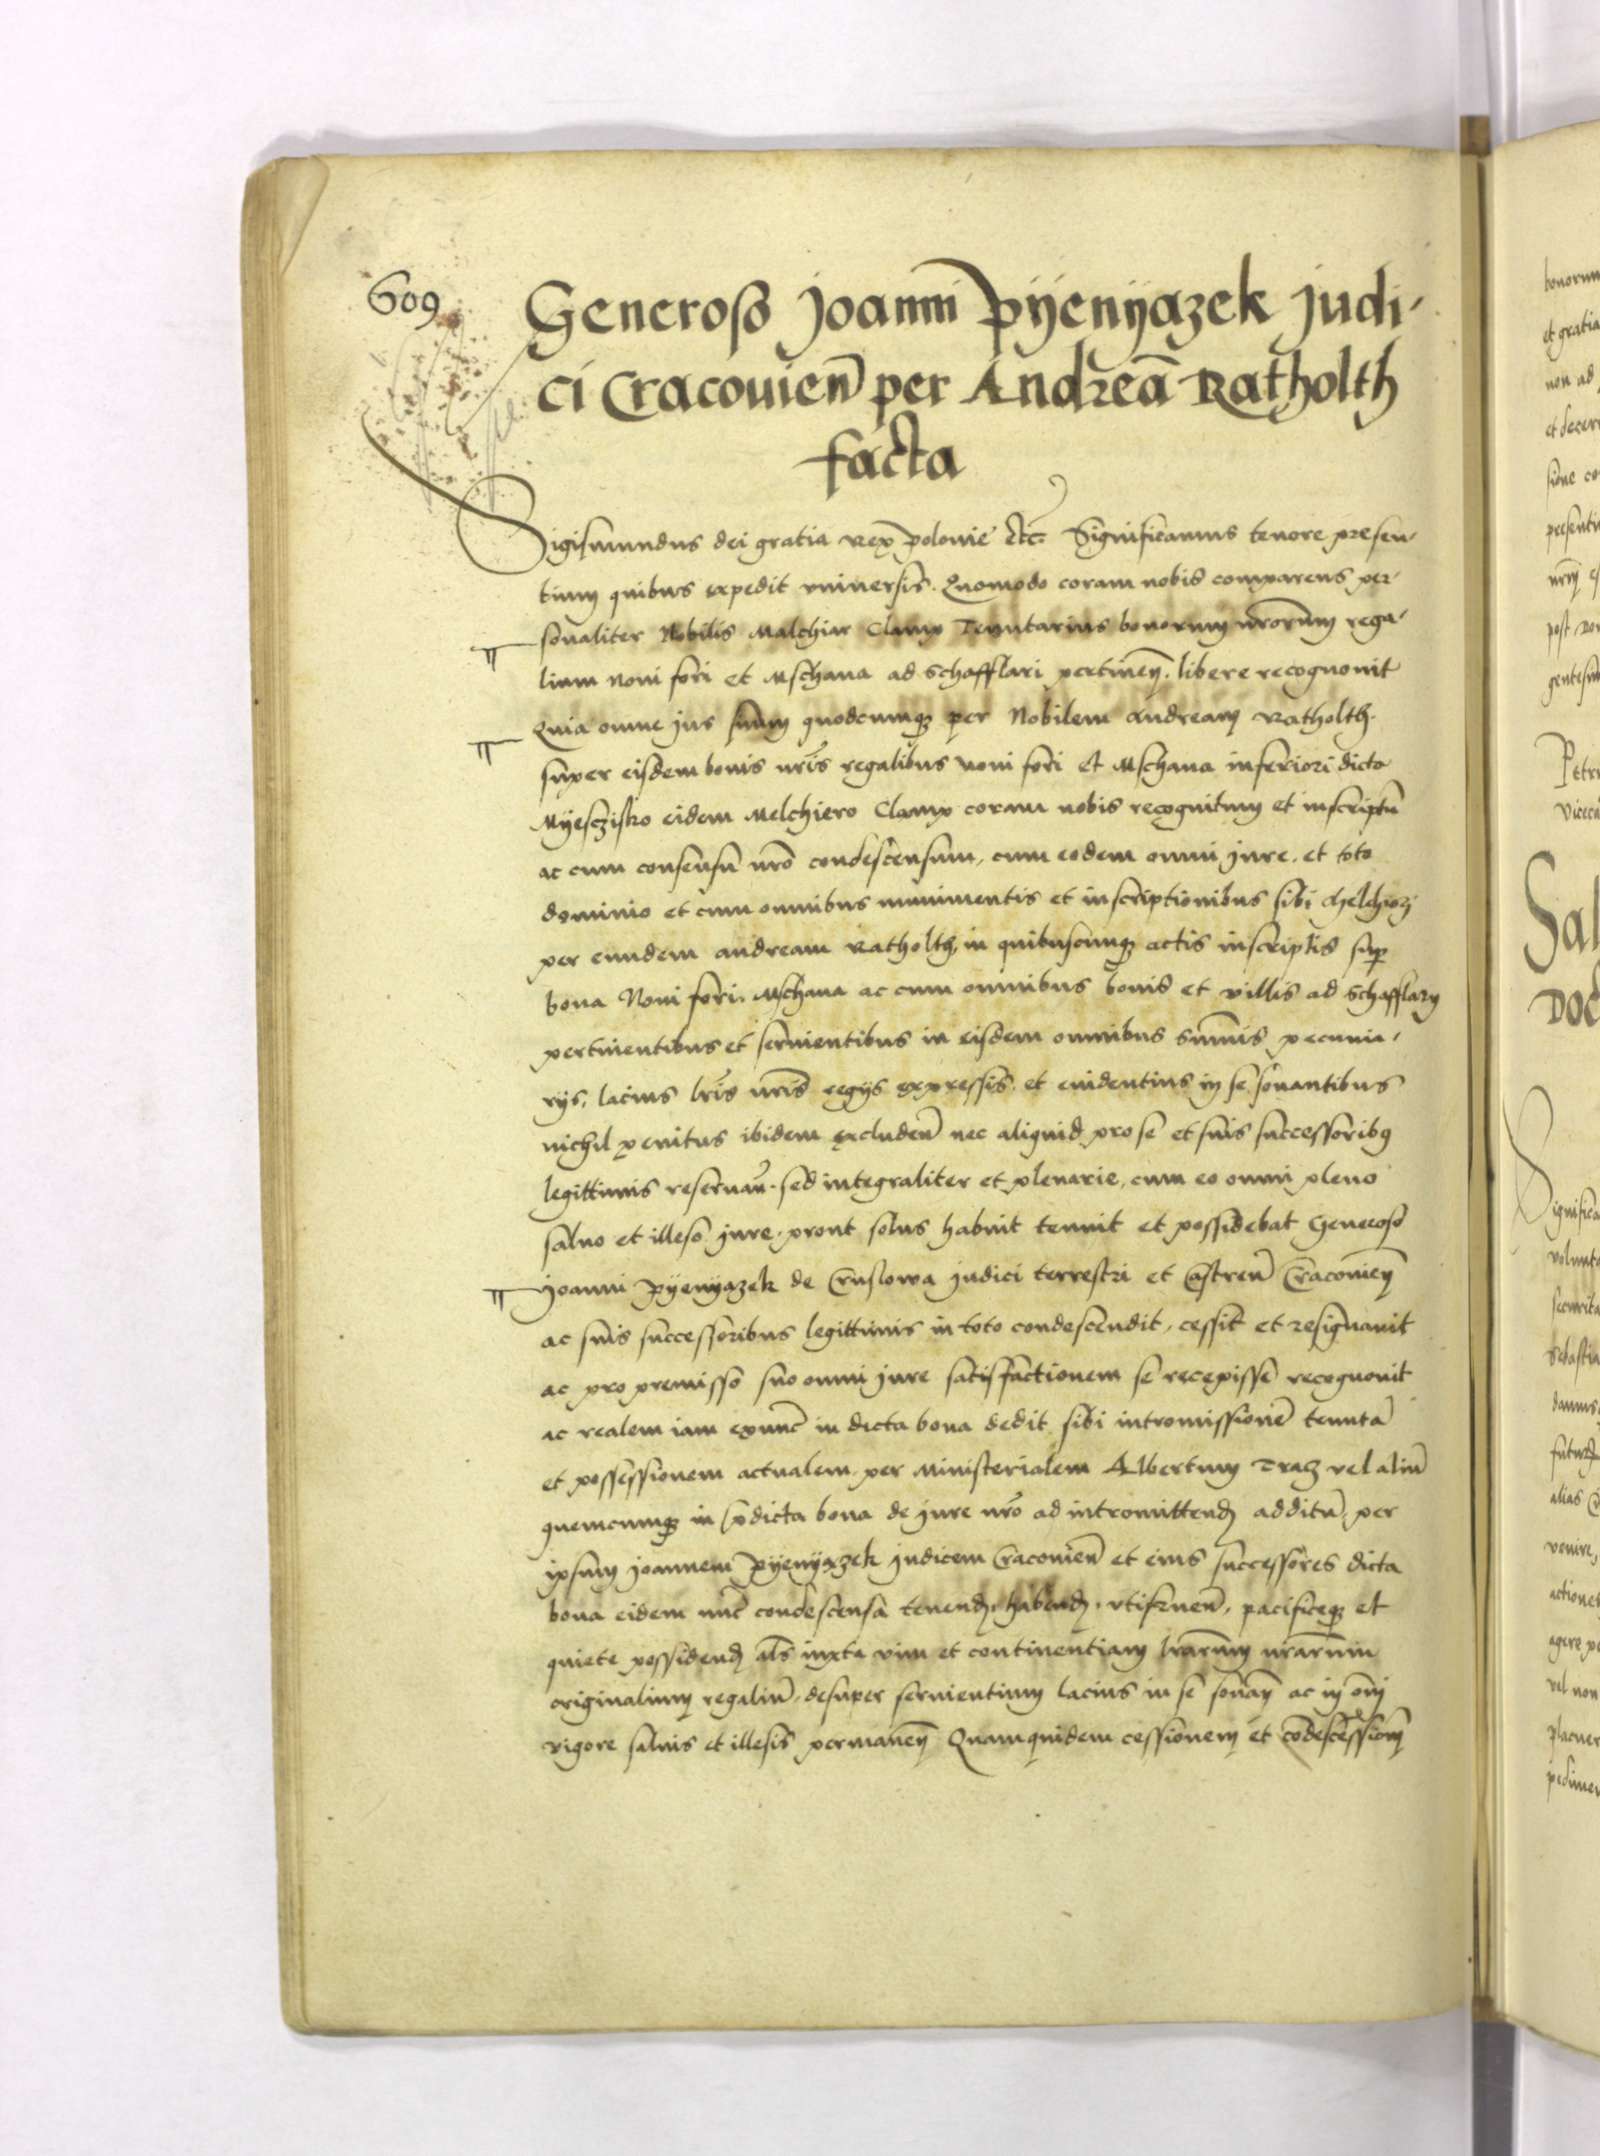 609
Generoso Joanni Pÿenÿazek Judi-
ci Cracouien̄ per Andreā Ratholth
facta
Sigismundus dei gratia Rex Polonie etc. Significamus tenore presen-
tium quibus expedit vniuersis. Quomodo coram nobis comparens per-
sonaliter Nobilis Malchiar Clamp Tenutarius bonorum nrōrum rega-
lium Noui fori et Mschana ad Schafflari pertineñ. libere recognouit
Quia omne jus suum quodcumqȝ per Nobilem Andream Ratholth.
super eisdem bonis nrīs regalibus Noui fori et Mschana inferiori dicta
Mÿesczisko eidem Melchiero Clamp coram nobis recognitum et inscriptū
ac cum consensu nrō condescensum, cum eodem omni jure. et toto
dominio et cum omnibus munimentis et inscriptionibus sibi Melchiori
per eundem Andream Ratholth, in quibuscumqȝ actis inscriptis suꝑ
bona Noui fori. Mschana ac cum omnibus bonis et villis ad Schafflary
pertinentibus et seruientibus in eisdem omnibus summis pecunia-
rijs, lacius lrīs nrīs regijs expressis. et euidentius in se sonantibus
nichil penitus ibidem excludeñ nec aliquid pro se et suis successoribꝫ
legittimis reseruañ. sed integraliter et plenarie, cum eo omni pleno
saluo et illeso jure. prout solus habuit tenuit et possidebat Generoso
Joanni Pÿenÿazek de Cruslowa Judici terrestri et Castreñ Cracouieñ
ac suis successoribus legittimis in toto condescendit, cessit et resignauit
ac pro premisso suo omni jure satisfactionem se recepisse recognouit
ac realem iam exunc in dicta bona dedit sibi intromissionē tenutā
et possessionem actualem. per Ministerialem Albertum Tracz vel aliū
quemcumqȝ in p̄dicta bona de jure nrō ad intromittenđ additū, per
ipsum Joannem Pÿenÿazek Judicem Cracouieñ et eius successores dicta
bona eidem nūc condescensa tenenđ. habenđ. vtifrueñ. pacificeqȝ et
quiete possidenđ als̄ iuxta vim et continentiam lrārum nrārum
originalium regaliū. desuper seruientium lacius in se sonañ ac in om̄i
vigore saluis et illesis permaneñ Quamquidem cessionem et cōdescēssionē